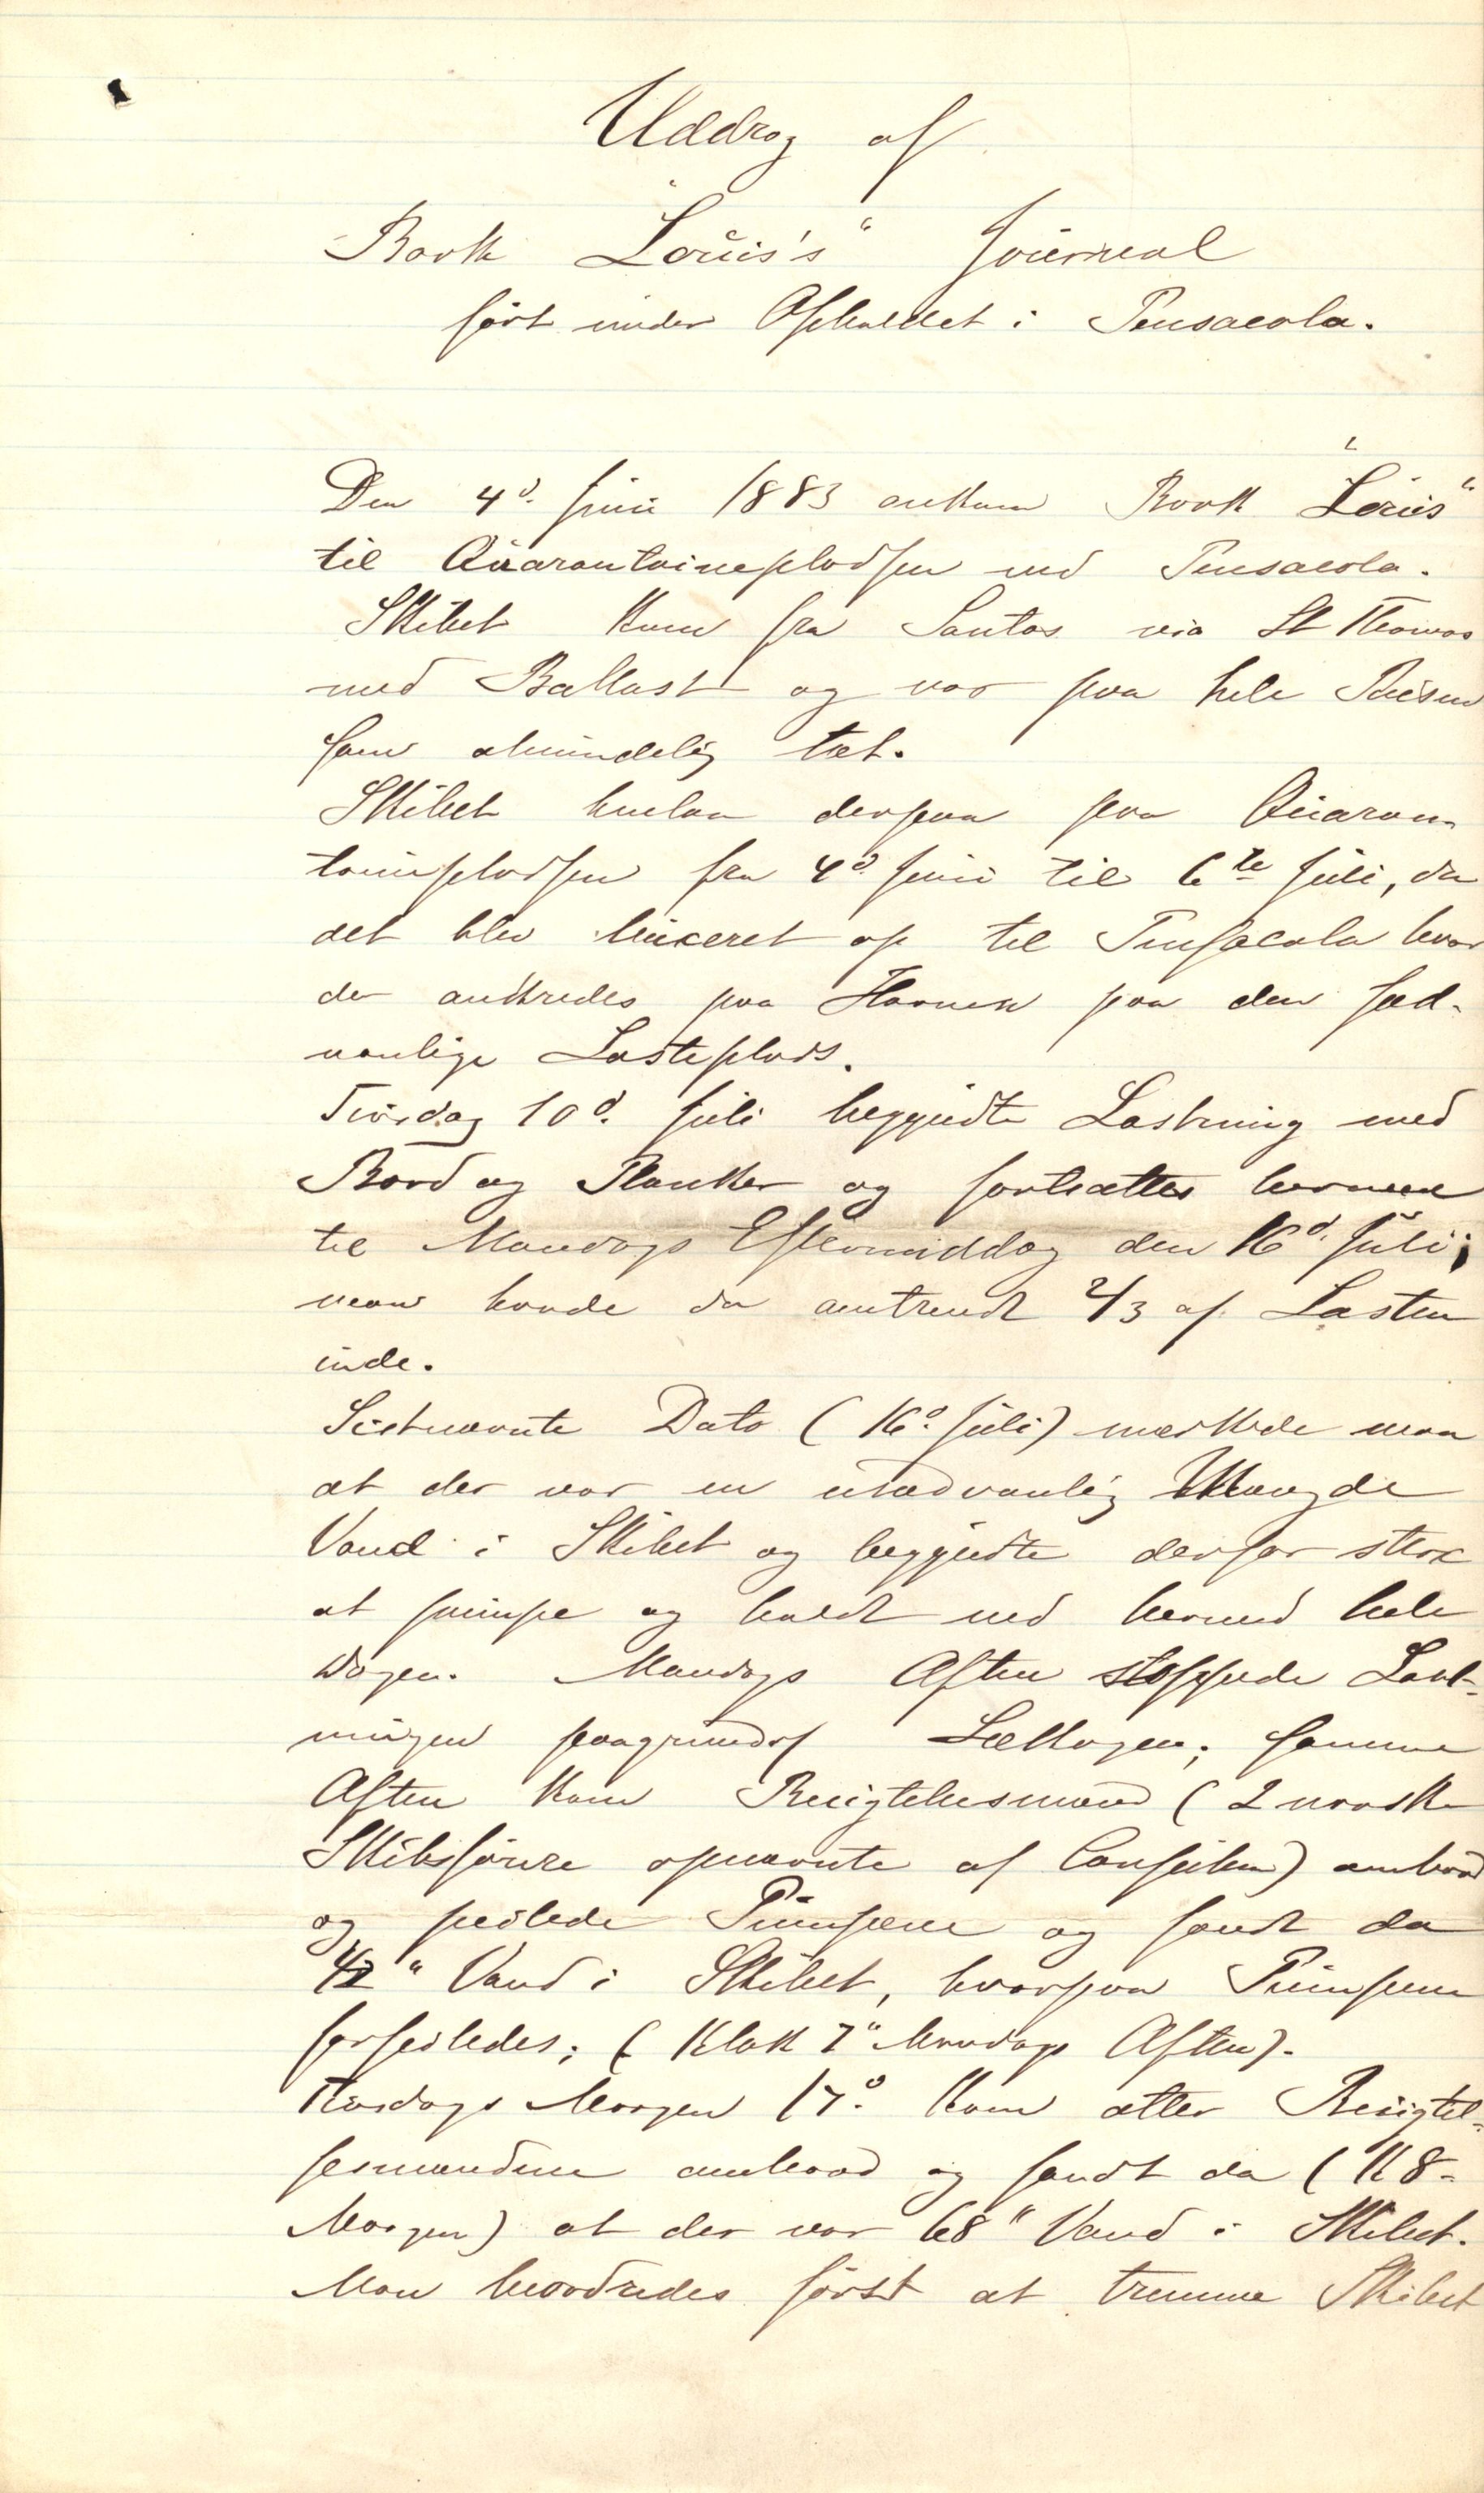 Uddrag af
Bark "Louis's" Journal
ført under Opholdet i Pensacola.
Den 4d. Juni 1883 ankom Bark "Louis"
til Quarantaineplodsen ved Pensacola.
Skibet kom fra Santos via St Thomas
med Ballast og var paa hele Reisen
som almindelig tæt.
Skibet henlaa derpaa paa Quaran-
tainepladsen fra 4d. Juni til 6te Juli, da
det blev buxeret op til Pensacola hvor
der ankredes paa Havnen paa den sæd-
vanlige Lasteplads.
Tirsdag 10d. Juli begyndte Lastning med
Bord og Planker og fortsattes hermed
til Mandags Eftermiddag den 16d. Juli;
man havde da omtrendt 2/3 af Lasten
inde.
Sidtnævnte Dato (16d. Juli) mærkede man
at der var en usædvanlig Mængde
Vand i Skibet og begyndte derfor strax
at pumpe og holdt ved hermed hele
Dagen. Mandags Aften stoppede Last-
ningen paagrundaf Lækagen; samme
Aften kom Besigtelsesmænd (2 norske
Skibsførere opnævnte af Consulen) ombord
og peilede Pumperne og fandt da
42" Vand i Skibet, hvorpaa Pumperne
forseiledes; (Klok 7" Mandags Aften).
Tirsdags Morgen 17d. kom atter Besigtel-
sesmændene ombord og fandt da (Kl 8-
Morgen) at der var 68" Vand i Skibet.
Man beordredes først at trimme Skibet